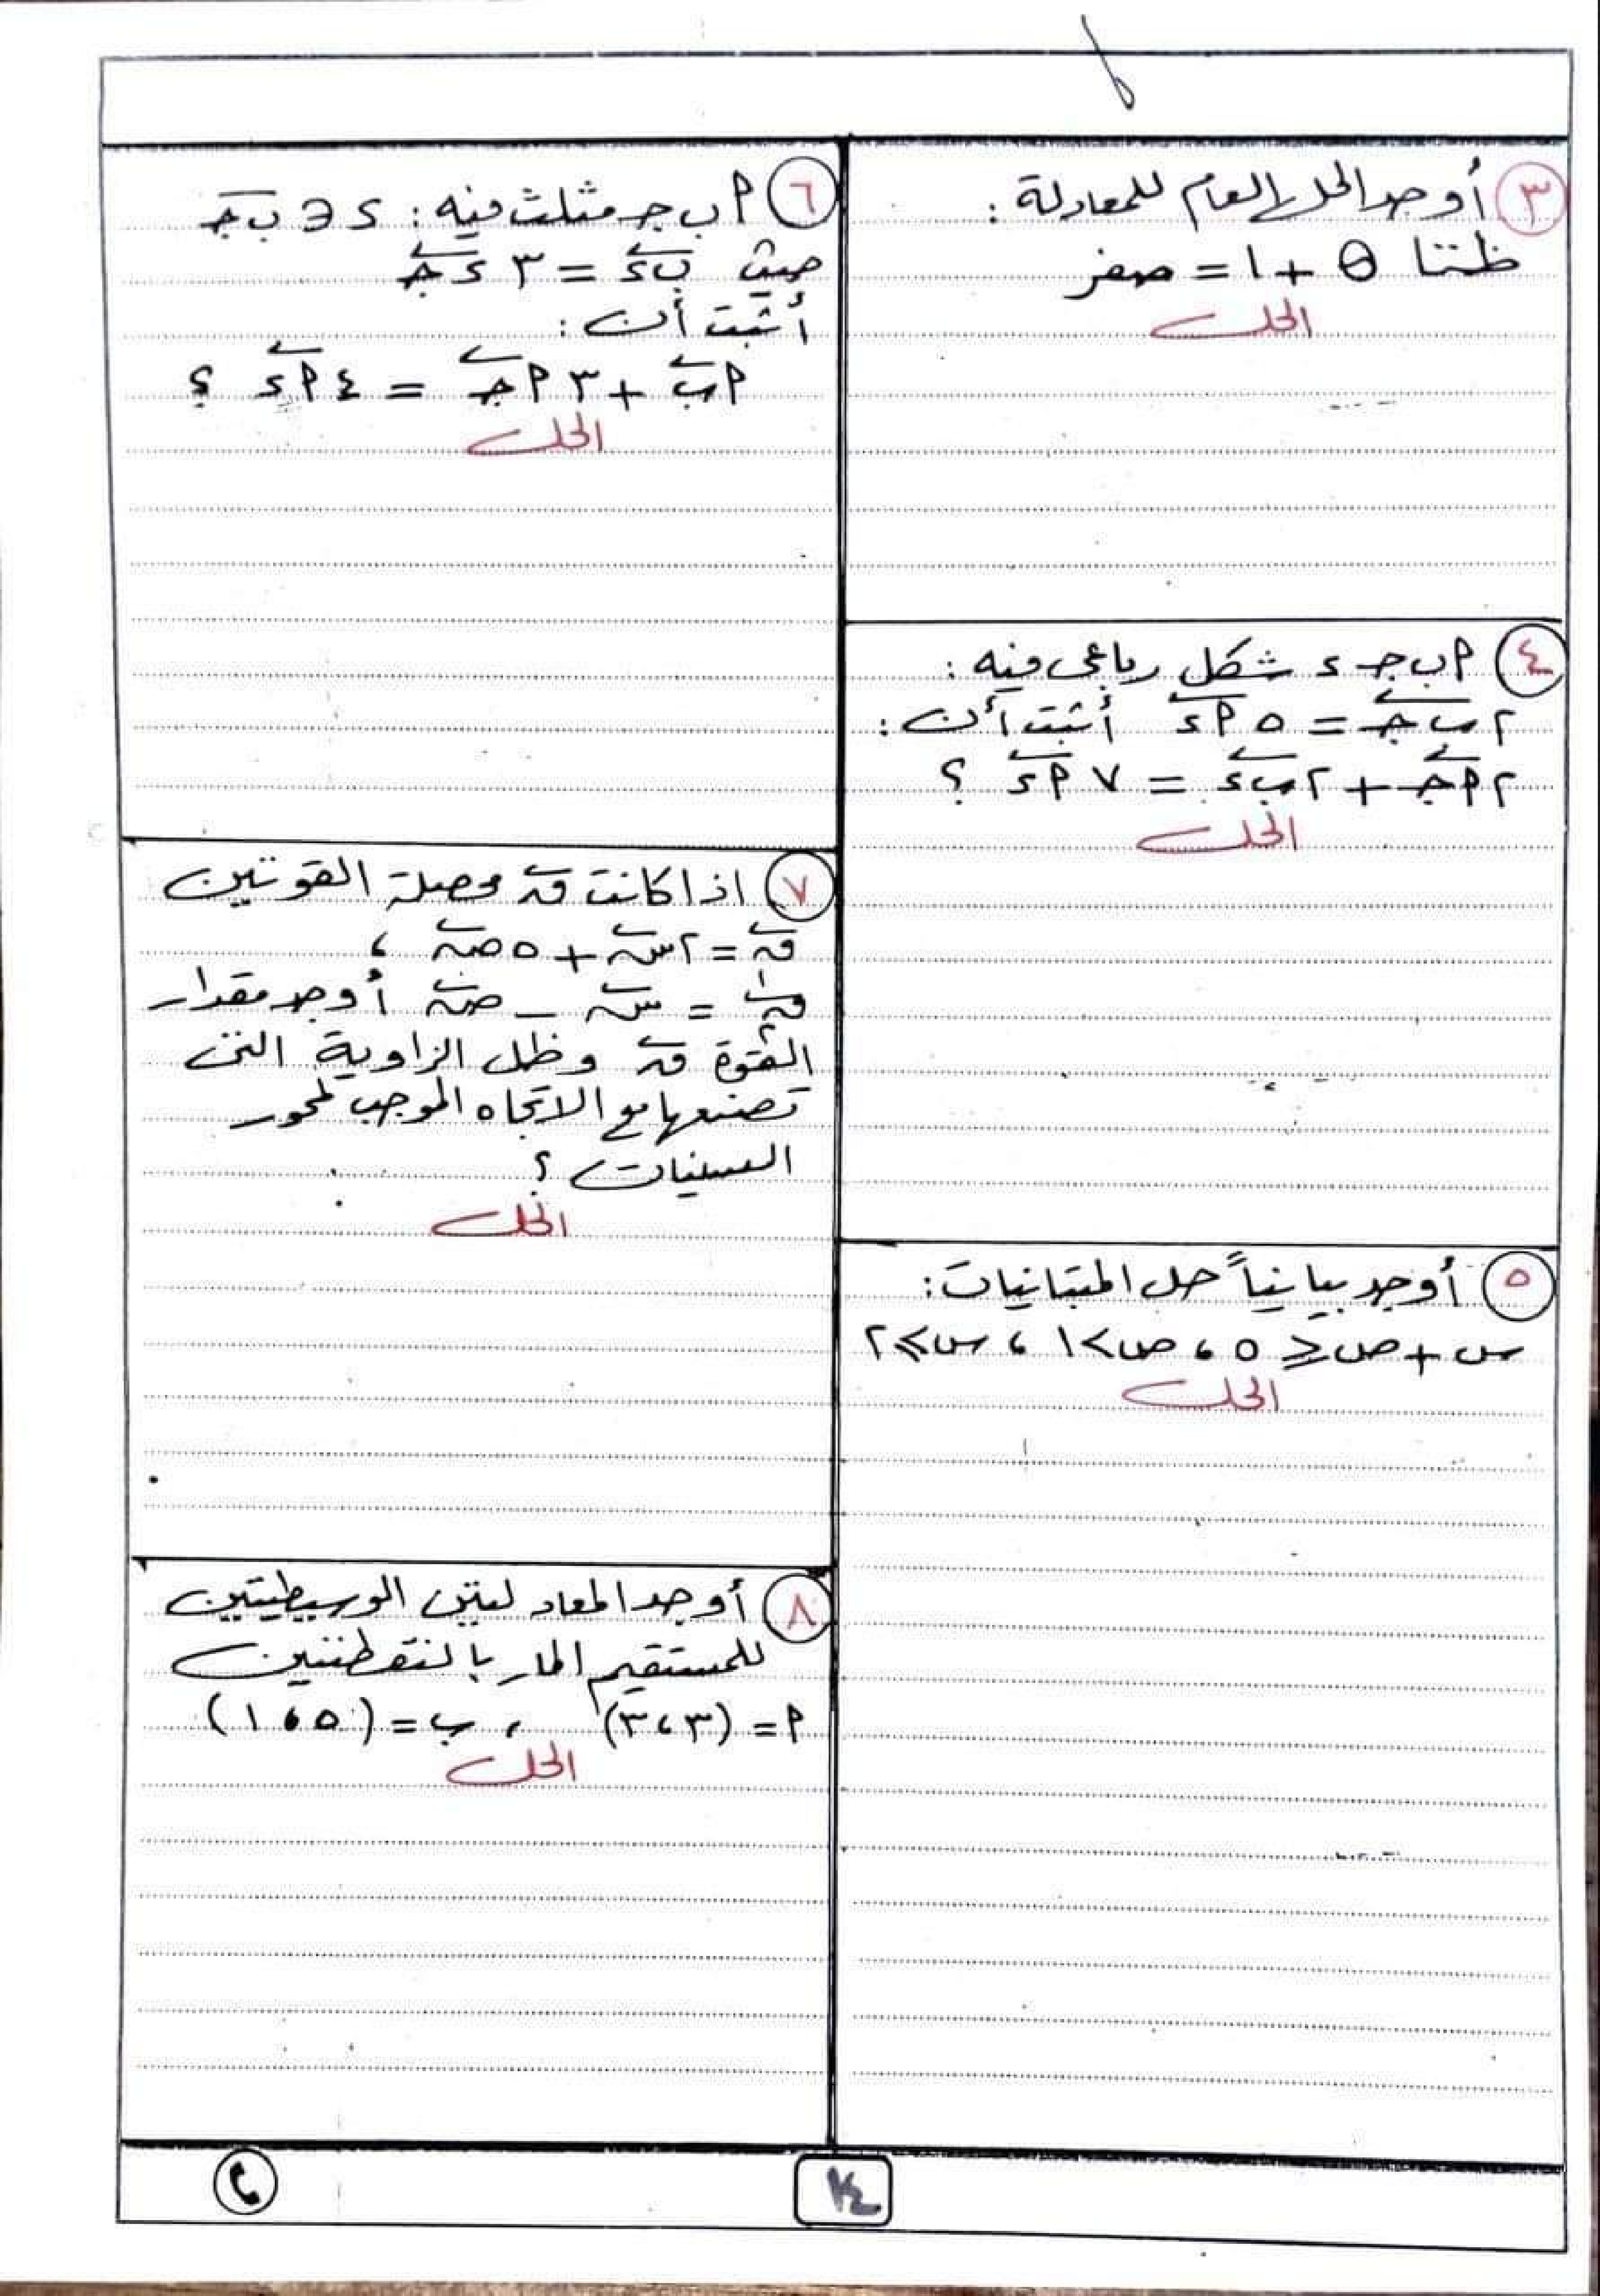 ٣ أوجد الحل العام للمعادلة :
ظتا θ + ١ = صفر
الحل
٤ ٩ ب ج ء شكل رباعى فيه :
٢ ب ج = ٥ ٩ ء أثبت أن :
٢ ٩ ج + ٢ ب ء = ٧ ٩ ء ؟
الحل
٥ أوجد بيانياً حل المتباينات :
س + ص ≤ ٥ ، ص > ١ ، س ≥ ٢
الحل
٦ ٩ ب ج مثلث فيه : ء ∈ ب ج
حيث ب ء = ٣ ء ج
أثبت أن :
٩ ب + ٣ ٩ ج = ٤ ٩ ء ؟
الحل
٧ اذا كانت ق محصلة القوتين
ق١ = ٢ س + ٥ ص ،
ق٢ = س - ص أوجد مقدار
القوة ق وظل الزاوية التى
تصنعها مع الاتجاه الموجب لمحور
السينات ؟
الحل
٨ أوجد المعادلتين الوسيطيتين
للمستقيم المار بالنقطتين
٩ = (٣ ، ٣) ، ب = (٥ ، ١)
الحل